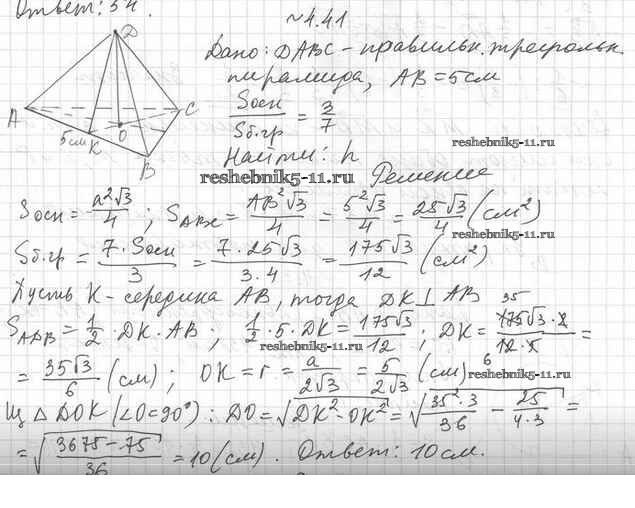 Ответ: 54.
№4.41
Дано: DABC - правильн. треугольн.
пирамида, AB = 5см
Sосн / Sб.гр = 3/7
reshebnik5-11.ru
Найти: h
reshebnik5-11.ru
Решение
D
A
C
5см
K
O
B
Sосн = a²√3/4 ; S_ABC = AB²√3/4 = 5²√3/4 = 25√3/4 (см²)
reshebnik5-11.ru
Sб.гр = 7·Sосн/3 = 7·25√3/3·4 = 175√3/12 (см²)
Пусть K - середина AB, тогда DK ⊥ AB
S_ADB = 1/2 · DK · AB ; 1/2 · 5 · DK = 175√3/12 ; DK = 175√3·2/12·5 =
35
6
reshebnik5-11.ru
= 35√3/6 (см) ; OK = r = a/2√3 = 5/2√3 (см)
Из △DOK (∠O=90°) : DO = √(DK² - OK²) = √(35²·3/36 - 25/4·3) =
= √(3675-75/36) = 10 (см). Ответ: 10 см.
reshebnik5-11.ru